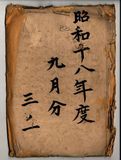 昭和十八年度
九月分
三ノ二